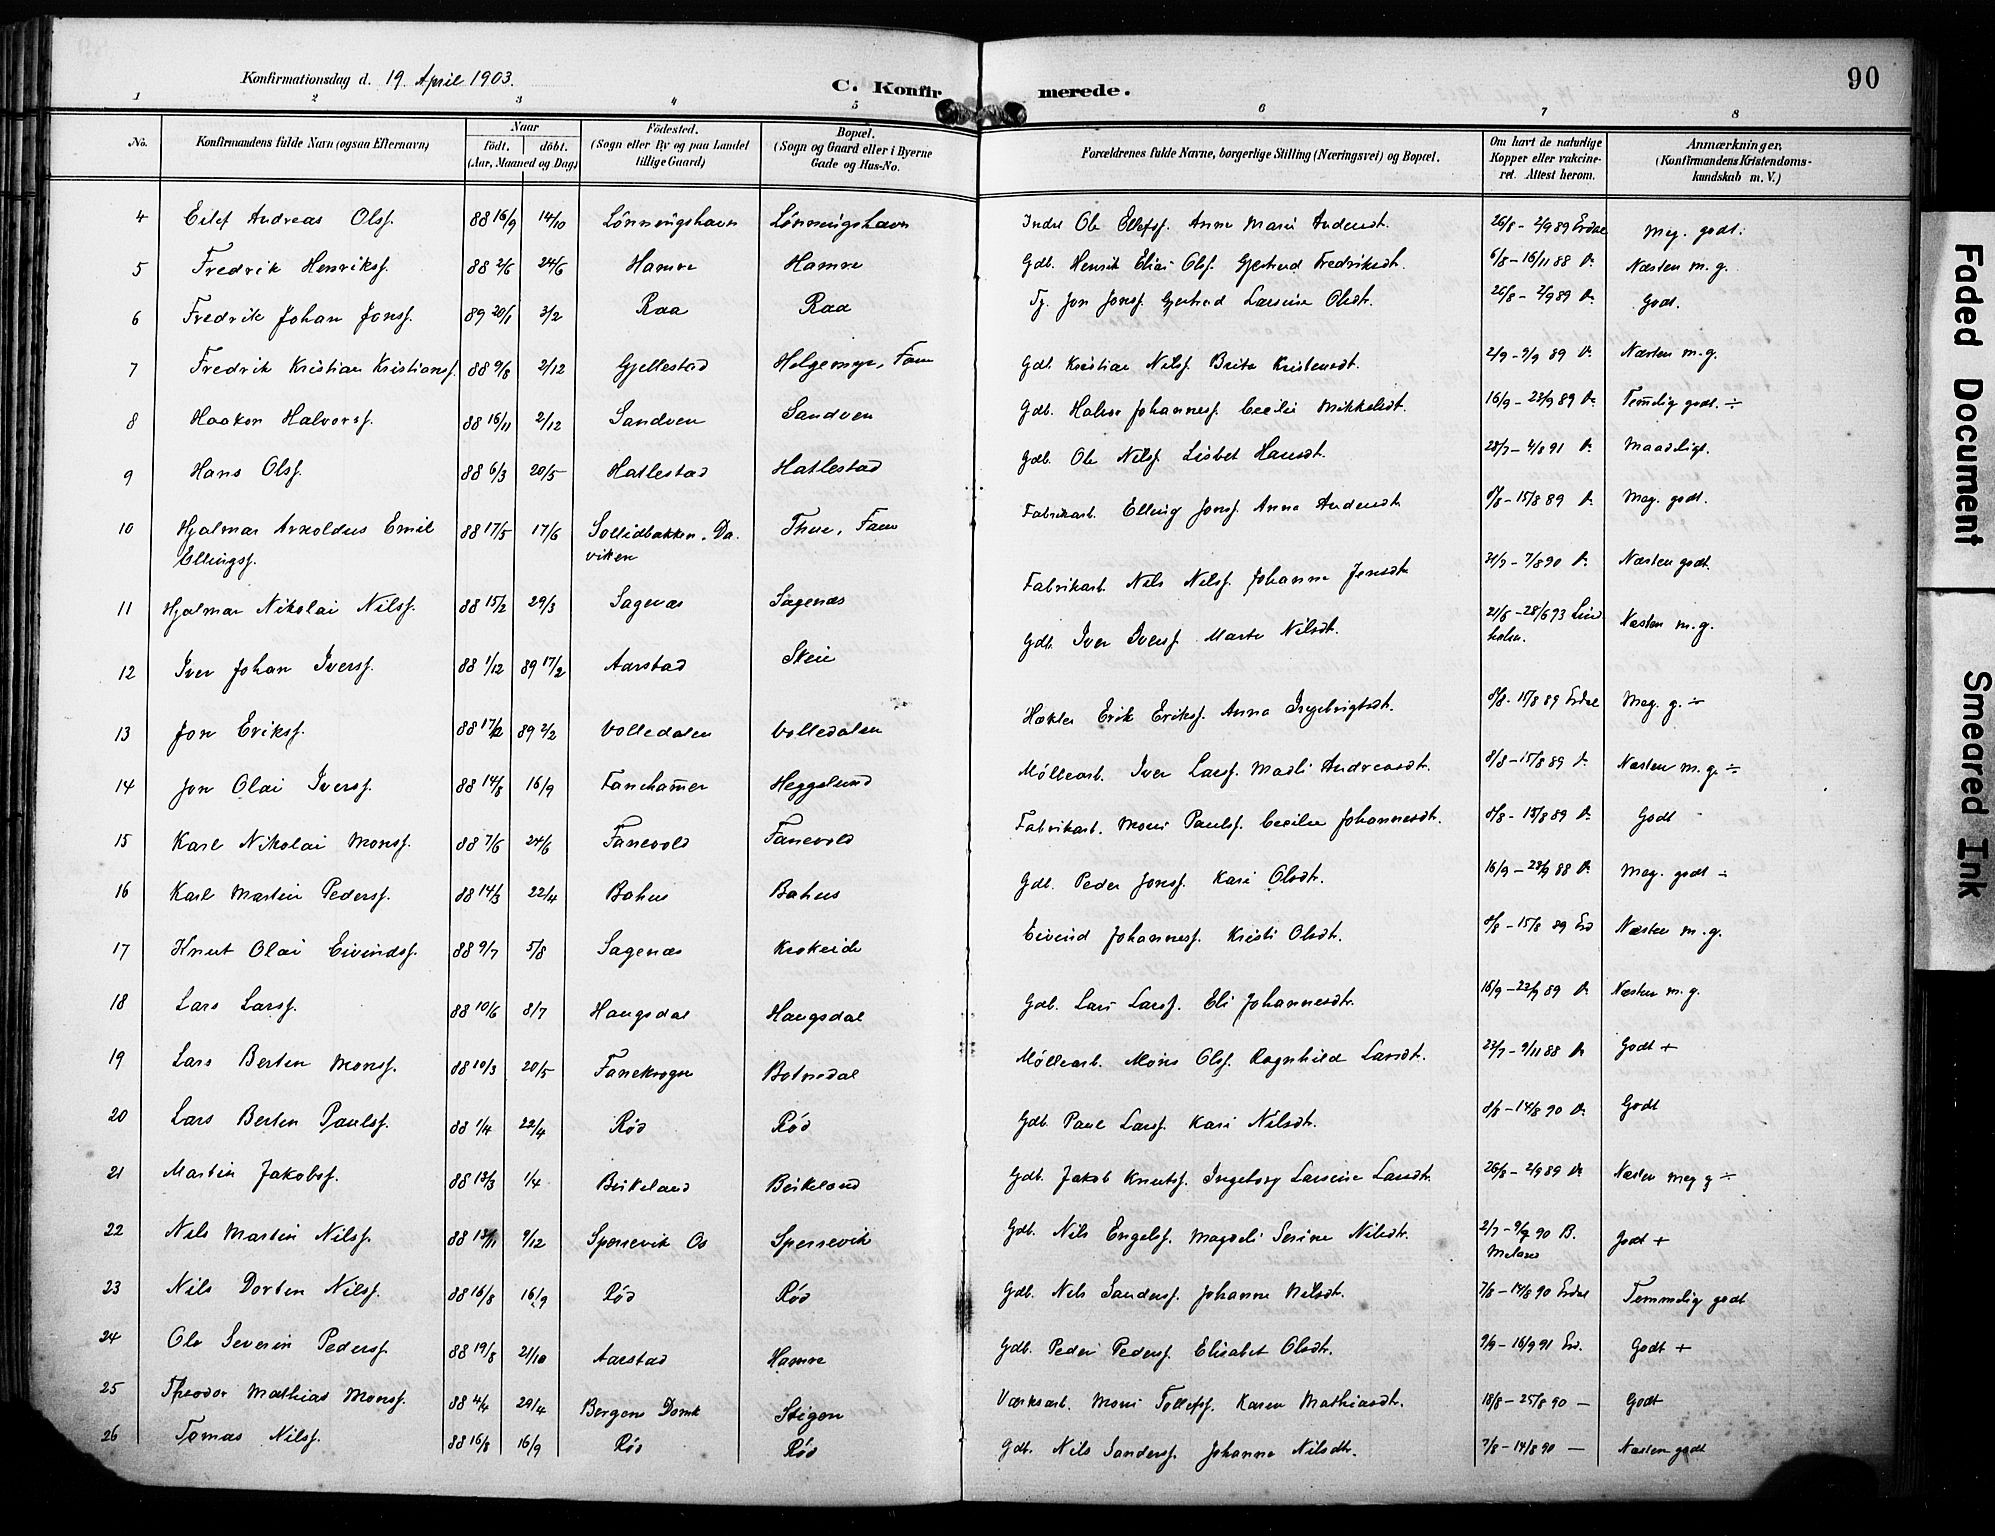 Konfirmationsdag d. 19. April 1903.
C. Konfirmerede.
90
1 2 3 4 5 6 7 8
No. Konfirmandens fulde Navn (ogsaa Efternavn) Naar födt. döbt. (Aar, Maaned og Dag) Födested. (Sogn eller By og paa Landet tillige Gaard) Bopæl. (Sogn og Gaard eller i Byerne Gade og Hus-No. Forældrenes fulde Navne, borgerlige Stilling (Næringsvei) og Bopæl. Om havt de naturlige Kopper eller vakcineret. Attest herom. Anmærkninger. (Konfirmandens Kristendomskundskab m. V.)
4 Eilef Andreas Olsf. 88 16/9 14/10 Lønningshavn Lønningshavn Inds Ole Ellefsf. Anna Marie Andersdt. 26/8 - 2/9 89 Erdal Meg. godt.
5 Fredrik Henriksf. 88 2/6 24/6 Hamre Hamre Gdb. Henrik Elias Olsf. Gjertrud Fredriksdt. 6/8 - 16/11 88 Do Næsten m. g.
6 Fredrik Johan Jonsf. 89 20/1 3/2 Raa Raa Tj. Jon Jonsf. Gjertrud Larsine Olsdt. 26/8 - 2/9 89 Do Godt.
7 Fredrik Kristian Kristiansf. 88 9/8 2/12 Gjellestad Helgemyr, Fane Gdb. Kristian Nilsf. Brita Kristensdt. 2/9 - 9/9 89 Do Næsten m. g.
8 Haakon Halvorsf. 88 16/11 2/12 Sandven Sandven Gdb. Halvor Johannesf. Cecilie Mikkelsdt. 16/9 - 23/9 89 Do Temmelig godt. ÷
9 Hans Olsf. 88 6/3 20/5 Hatlestad Hatlestad Gdb. Ole Nilsf. Lisbet Hansdt. 28/7 - 4/8 91 Do Maadeligt.
10 Hjalmar Arnoldus Emil Ellingsf. 88 17/5 17/6 Sollidbakken, Daviken Thue, Fane Fabrikarb. Elling Jonsf. Anna Andersdt. 8/8 - 15/8 89 Do Meg. godt.
11 Hjalmar Nikolai Nilsf. 88 15/2 29/3 Sagenæs Sagenæs Fabrikarb. Nils Nilsf. Johanna Jensdt. 31/7 - 7/8 90 Do Næsten godt.
12 Iver Johan Iversf. 88 1/12 89 17/2 Aarstad Skeie Gdb. Iver Iversf. Marte Nilsdt. 21/6 - 28/6 93 Lindholm. Næsten m. g.
13 Jon Eriksf. 88 17/12 89 2/2 Volledalen Volledalen Hækler Erik Eriksf. Anna Ingebrigtsdt. 8/8 - 15/8 89 Erdal Meg. g. ÷
14 Jon Olai Iversf. 88 14/8 16/9 Fanehammer Heggelund Møllearb. Iver Larsf. Madli Andreasdt. 8/8 - 15/8 89 Do Næsten m. g. ÷
15 Karl Nikolai Monsf. 88 7/6 24/6 Fanevold Fanevold Fabrikarb. Mons Paulsf. Cecilie Johannesdt. 8/8 - 15/8 89 Do Godt
16 Karl Martin Pedersf. 88 14/3 22/4 Bahus Bahus Gdb. Peder Jonsf. Kari Olsdt. 16/9 - 23/9 88 Do Meg. godt ÷
17 Knut Olai Eivindsf. 88 9/7 5/8 Sagenæs Krokeide Eivind Johannesf. Kristi Olsdt. 8/8 - 15/8 89 Erd Næsten m. g.
18 Lars Larsf. 88 10/6 8/7 Haugsdal Haugsdal Gdb. Lars Larsf. Eli Johannesdt. 16/9 - 23/9 89 Do Næsten m. g.
19 Lars Berten Monsf. 88 10/3 20/5 Fanekrogen Botnedal Møllearb. Mons Olsf. Ragnhild Larsdt. 23/7 - 9/11 88 Do Godt +
20 Lars Berten Paulsf. 88 1/4 22/4 Rød Rød Gdb. Paul Larsf. Kari Nilsdt. 8/8 - 14/8 90 Do Godt
21 Martin Jakobsf. 88 13/3 1/4 Birkeland Birkeland Gdb. Jakob Knutsf. Ingeborg Larsine Larsdt. 26/8 - 2/9 89 Do Næsten meg g ÷
22 Nils Martin Nilsf. 88 13/11 9/12 Sperrevik Os Sperrevik Gdb. Nils Engelsf. Magdeli Serine Nilsdt. 2/7 - 9/7 90 B. Meland Godt +
23 Nils Dorten Nilsf. 88 16/8 16/9 Rød Rød Gdb. Nils Sandersf. Johanna Nilsdt. 7/8 - 14/8 90 Erdal Temmelig godt
24 Ole Severin Pedersf. 88 19/8 21/10 Aarstad Hamre Gdb. Peder Pedersf. Elisabet Olsdt. 9/9 - 16/9 91 Erd. Godt +
25 Theodor Mathias Monsf. 88 4/4 29/4 Bergens Domk Stigen Værksarb. Mons Tollefsf. Karen Mathiasdt. 18/8 - 25/8 90 - Godt
26 Tomas Nilsf. 88 16/8 16/9 Rød Rød Gdb. Nils Sandersf. Johanna Nilsdt. 7/8 - 14/8 90 - Næsten godt
Faded Document
Smeared Ink